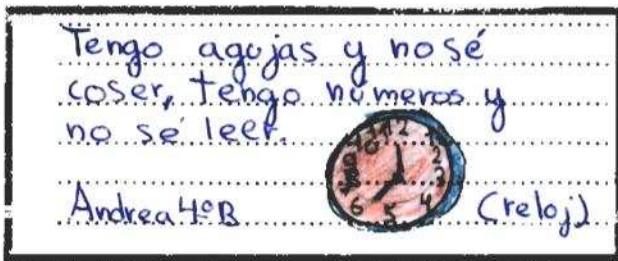 Tengo agujas y no sé
coser, tengo números y
no se leer.
Andrea 4ºB
(reloj)